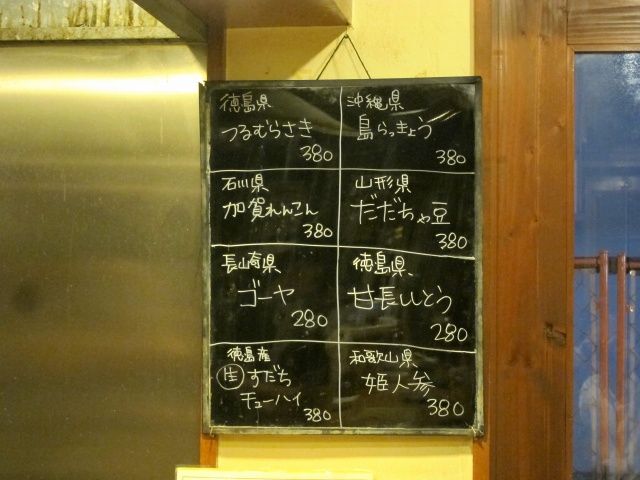 徳島県
つるむらさき
380
沖縄県
島らっきょう
380
石川県
加賀れんこん
380
山形県
だだちゃ豆
380
長崎県
ゴーヤ
280
徳島県
甘長ししとう
280
徳島産
生 すだち
チューハイ
380
和歌山県
姫人参
380